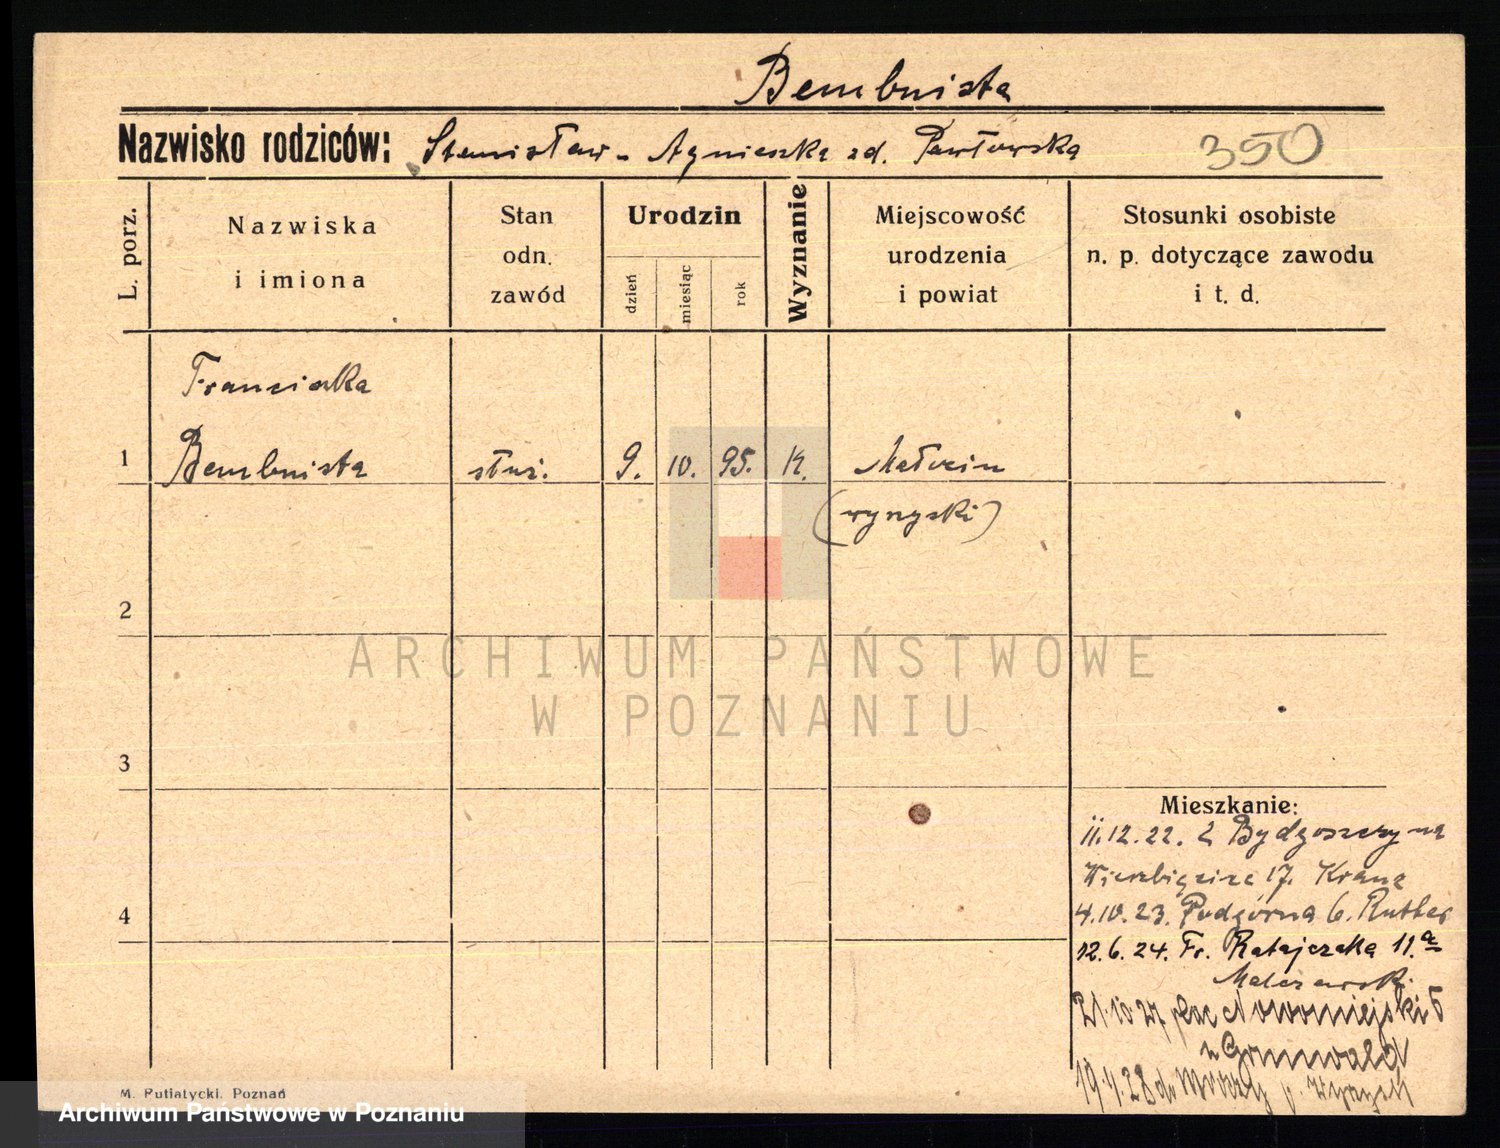 Bembnista
Nazwisko rodziców: Stanisław - Agnieszka zd. Pawłowska 350
L. porz.
Nazwiska
i imiona
Stan
odn.
zawód
Urodzin
dzień
miesiąc
rok
Wyznanie
Miejscowość
urodzenia
i powiat
Stosunki osobiste
n. p. dotyczące zawodu
i t. d.
Franciszka
1 Bembnista służ. 9. 10. 95. K.
(wyrzyski)
2
ARCHIWUM PAŃSTWOWE
W POZNANIU
3
Mieszkanie:
11.12.22. z Bydgoszczy na
Wierzbięcice 17. Kranz
4
4.10.23. Podgórna 6. Rutter
12.6.24. Fr. Ratajczaka 11.a
21.10.27 plac Nowomiejski 5
u Grunwald
M. Putiatycki, Poznań
Archiwum Państwowe w Poznaniu